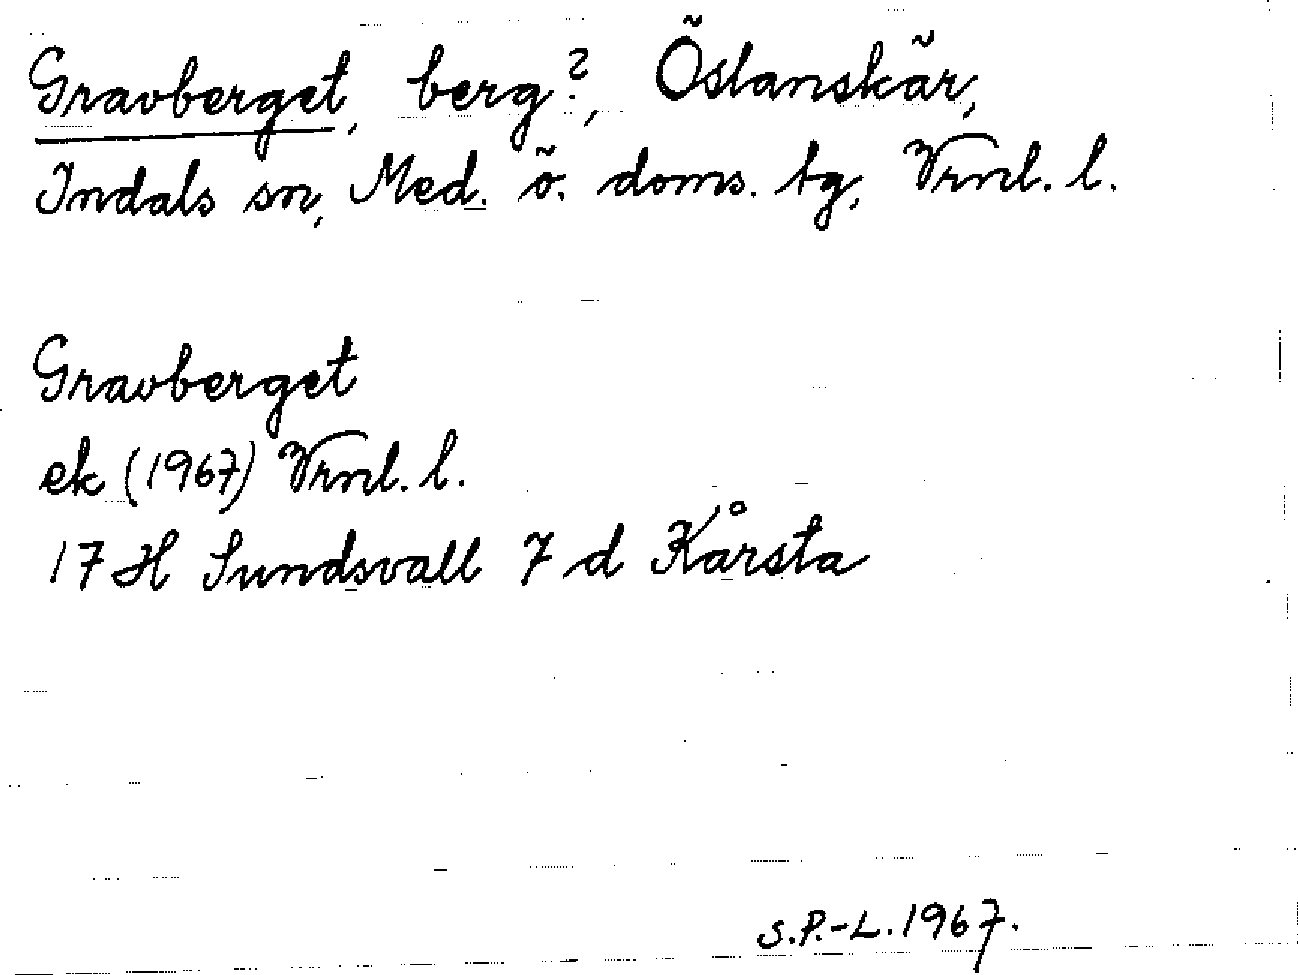 Gravberget, berg?, Östanskär,
Indals sn, Med. ö. doms. tg, Vrnl. l.
Gravberget
ek (1967) Vrnl. l.
17 H Sundsvall 7 d Kårsta
S.P.-L. 1967.